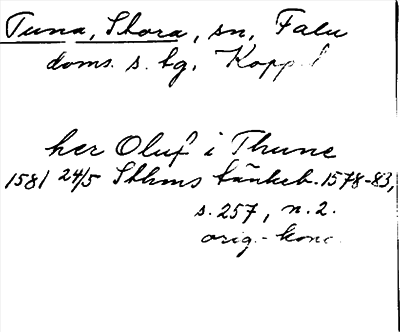 Tuna, Stora, sn, Falu
doms. s. tg, Kopp. l
her Oluf i Thune
1581 24/5 Sthms tänkeb. 1578-83,
s. 257, n. 2.
orig.-konc.